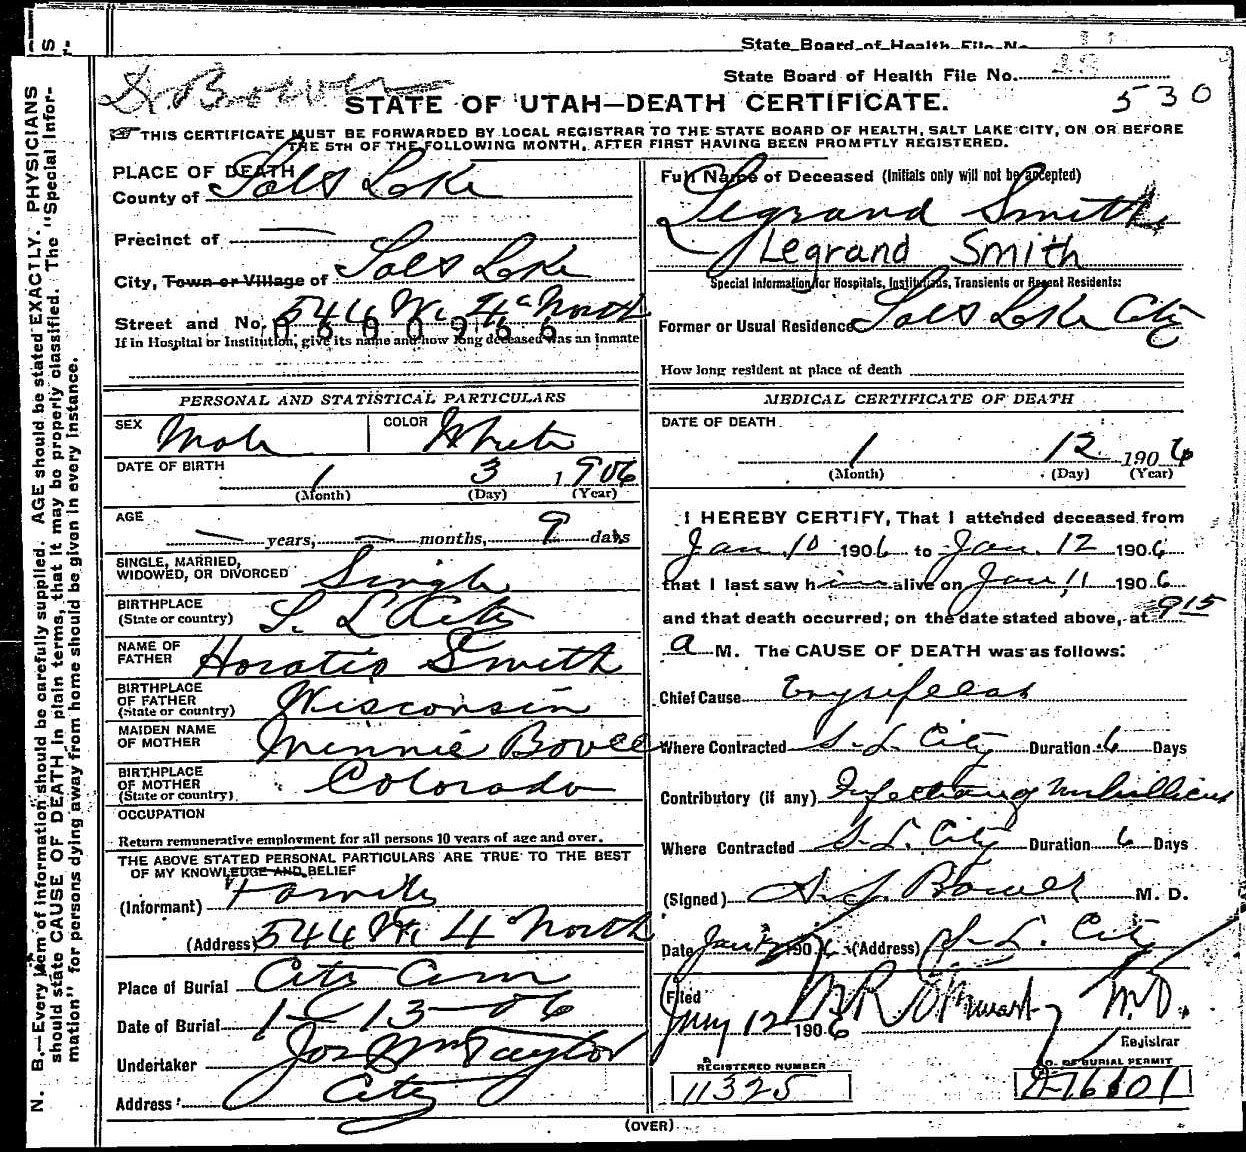 State Board of Health File No.
State Board of Health File No.
530
STATE OF UTAH—DEATH CERTIFICATE.
THIS CERTIFICATE MUST BE FORWARDED BY LOCAL REGISTRAR TO THE STATE BOARD OF HEALTH, SALT LAKE CITY, ON OR BEFORE
THE 5TH OF THE FOLLOWING MONTH, AFTER FIRST HAVING BEEN PROMPTLY REGISTERED.
PLACE OF DEATH
County of Salt Lake
Precinct of —
City, Town or Village of Salt Lake
Street and No. 544 W. 4th North
0600966
If in Hospital or Institution, give its name and how long deceased was an inmate
Full Name of Deceased (Initials only will not be accepted)
Legrand Smith
Legrand Smith
Special Information for Hospitals, Institutions, Transients or Recent Residents:
Former or Usual Residence Salt Lake City
How long resident at place of death
PERSONAL AND STATISTICAL PARTICULARS
SEX Male COLOR White
DATE OF BIRTH 1 3 1906
(Month) (Day) (Year)
AGE
— years, — months, 9 days
SINGLE, MARRIED,
WIDOWED, OR DIVORCED Single
BIRTHPLACE
(State or country) S. L. City
NAME OF
FATHER Horatio Smith
BIRTHPLACE
OF FATHER
(State or country) Wisconsin
MAIDEN NAME
OF MOTHER Minnie Bovee
BIRTHPLACE
OF MOTHER
(State or country) Colorado
OCCUPATION
Return remunerative employment for all persons 10 years of age and over.
THE ABOVE STATED PERSONAL PARTICULARS ARE TRUE TO THE BEST
OF MY KNOWLEDGE AND BELIEF
(Informant) Family
(Address) 544 W. 4 North
Place of Burial City Cem
Date of Burial 1-13-06
Undertaker Jos Wm Taylor
Address City
MEDICAL CERTIFICATE OF DEATH
DATE OF DEATH
1 12 1906
(Month) (Day) (Year)
I HEREBY CERTIFY, That I attended deceased from
Jan. 10 1906 to Jan. 12 1906
that I last saw him alive on Jan 11 1906
and that death occurred, on the date stated above, at 9 15
a M. The CAUSE OF DEATH was as follows:
Chief Cause Erysipelas
Where Contracted S. L. City Duration 6 Days
Contributory (if any) Infection of Umbilicus
Where Contracted S. L. City Duration 6 Days
(Signed) Bower M. D.
Date Jan 1906 (Address) S. L. City
Filed
Jany 12 1906 M.D.
Registrar
REGISTERED NUMBER
11325
NO. OF BURIAL PERMIT
(OVER)
N. B.—Every item of information should be carefully supplied. AGE should be stated EXACTLY. PHYSICIANS
should state CAUSE OF DEATH in plain terms, that it may be properly classified. The "Special Infor-
mation" for persons dying away from home should be given in every instance.